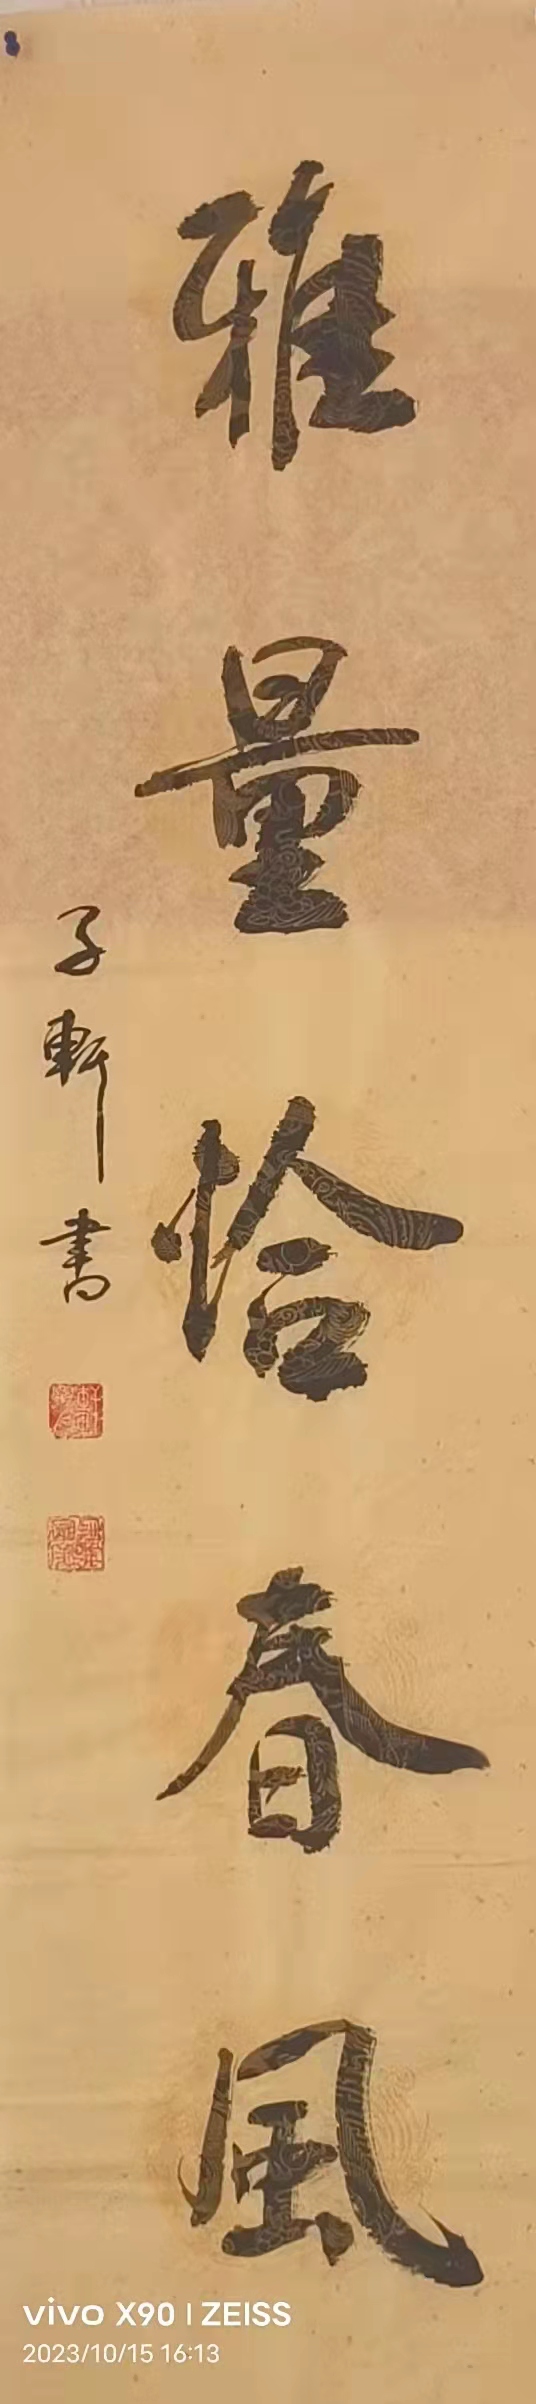 雅量恰春風
子軒書
vivo X90 | ZEISS
2023/10/15 16:13